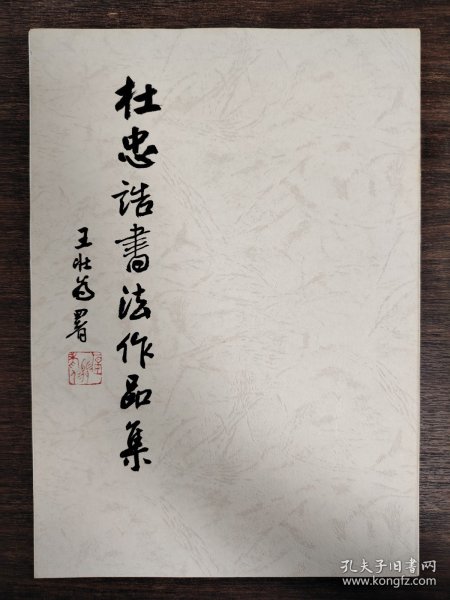 杜忠誥書法作品集
王壯為署
孔夫子旧书网
www.kongfz.com